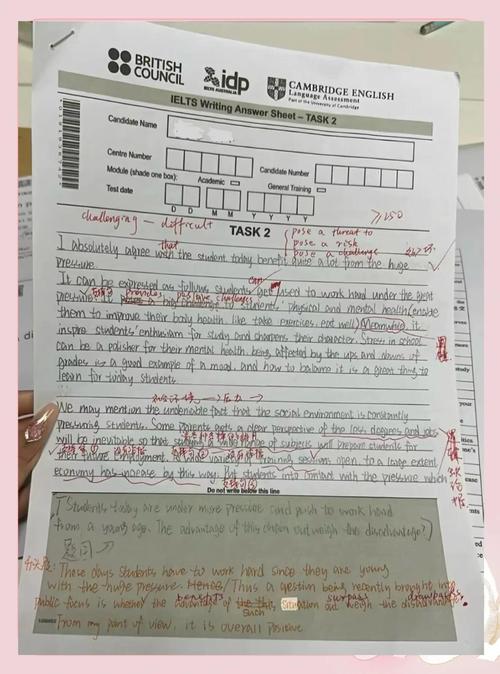 BRITISH COUNCIL
idp
IELTS AUSTRALIA
CAMBRIDGE ENGLISH
Language Assessment
Part of the University of Cambridge
IELTS Writing Answer Sheet – TASK 2
Candidate Name
Centre Number
Candidate Number
Module (shade one box):
Academic
General Training
Test date
D D M M Y Y Y Y
challenging — difficult
≥250
TASK 2
pose a threat to
pose a risk
pose a challenge
that
I absolutely agree with the student today benefit quite a lot from the huge
pressure.
can
It can be expressed as follows students get used to work hard under the great
provides positive challenges
pressure students' physical and mental health (enable
them to improve their body health like take exercises, eat well) Meanwhile, it
inspire students' enthusiasm for study and sharpens their character. Stress in school
can be a polisher for their mental health being affected by the ups and downs of
grades is a good example of a mood, and how to balance it is a great thing to
learn for today students.
We may mention the undeniable fact that the social environment is constantly
pressuring students. Some parents gets a clear perspective of the loss degrees and jobs
will be inevitable so that studying a wide range of subjects will prepare students for
future employment. training sections open, to a large extent
economy has increase by this way. Put students into contact with the pressure which
Do not write below this line
(Students today are under more pressure and push to work hard
from a young age. The advantage of this chaon outweigh the disadvantage?)
These days students have to work hard since they are young
with the huge pressure. Hence/Thus a question being recently brought into
benefits surpass drawbacks
public focus is whether the advantage of such situation out weigh the disadvantage
From my point of view, it is overall positive.